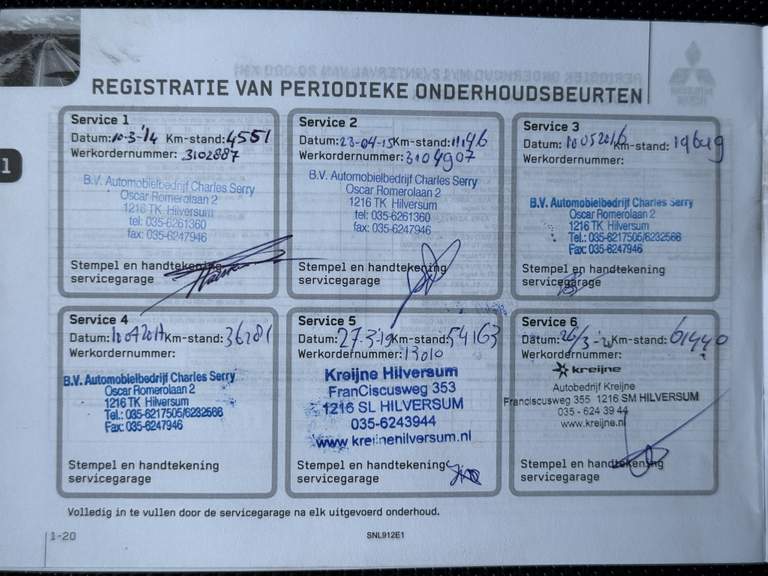 REGISTRATIE VAN PERIODIEKE ONDERHOUDSBEURTEN
1
Service 1
Datum: 10-3-'14 Km-stand: 4551
Werkordernummer: 3102887
B.V. Automobielbedrijf Charles Serry
Oscar Romerolaan 2
1216 TK Hilversum
tel: 035-6261360
fax: 035-6247946
Stempel en handtekening
servicegarage
Service 2
Datum: 23-04-15 Km-stand: 11146
Werkordernummer: 3104907
B.V. Automobielbedrijf Charles Serry
Oscar Romerolaan 2
1216 TK Hilversum
tel: 035-6261360
fax: 035-6247946
Stempel en handtekening
servicegarage
Service 3
Datum: Km-stand:
Werkordernummer:
B.V. Automobielbedrijf Charles Serry
Oscar Romerolaan 2
1216 TK Hilversum
Tel.: 035-6217505/6232566
Fax: 035-6247946
Stempel en handtekening
servicegarage
Service 4
Datum: Km-stand: 36281
Werkordernummer:
B.V. Automobielbedrijf Charles Serry
Oscar Romerolaan 2
1216 TK Hilversum
Tel.: 035-6217505/6232566
Fax: 035-6247946
Stempel en handtekening
servicegarage
Service 5
Datum: 27-3-19 Km-stand: 54163
Werkordernummer: 13010
Kreijne Hilversum
FranCiscusweg 353
1216 SL HILVERSUM
035-6243944
www.kreijnehilversum.nl
Stempel en handtekening
servicegarage
Service 6
Datum: 26/3-'20 Km-stand: 61440
Werkordernummer:
kreijne
Autobedrijf Kreijne
Franciscusweg 355 1216 SM HILVERSUM
035 - 624 39 44
www.kreijne.nl
Stempel en handtekening
servicegarage
Volledig in te vullen door de servicegarage na elk uitgevoerd onderhoud.
1-20
SNL912E1